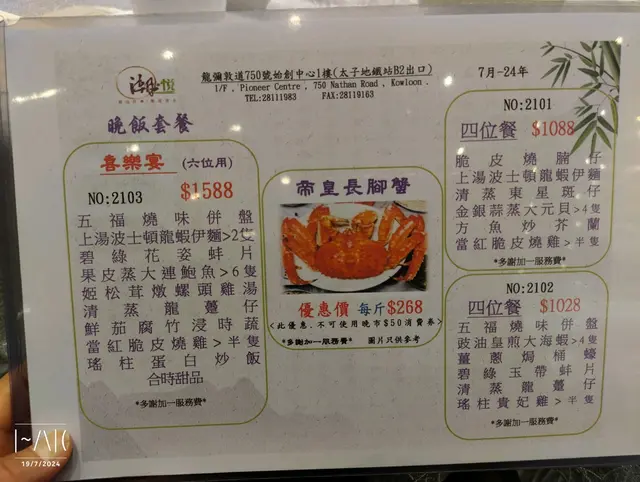 湖悅
龍彌敦道750號始創中心1樓(太子地鐵站B2出口)
1/F , Pioneer Centre , 750 Nathan Road , Kowloon .
TEL:28111983 FAX:28119163
7月-24年
晚飯套餐
喜樂宴 (六位用)
NO:2103 $1588
五福燒味併盤
上湯波士頓龍蝦伊麵>2隻
碧綠花姿蚌片
果皮蒸大連鮑魚>6隻
姬松茸燉螺頭雞湯
清蒸龍躉仔
鮮茄腐竹浸時蔬
當紅脆皮燒雞>半隻
瑤柱蛋白炒飯
合時甜品
*多謝加一服務費*
帝皇長腳蟹
優惠價 每斤$268
<此優惠,不可使用晚市$50消費券>
*多謝加一服務費* 圖片只供參考
NO:2101
四位餐 $1088
脆皮燒腩仔
上湯波士頓龍蝦伊麵
清蒸東星斑仔
金銀蒜蒸大元貝>4隻
方魚炒芥蘭
當紅脆皮燒雞>半隻
*多謝加一服務費*
NO:2102
四位餐 $1028
五福燒味併盤
豉油皇煎大海蝦>4隻
薑蔥焗桶蠔
碧綠玉帶蚌片
清蒸龍躉仔
瑤柱貴妃雞>半隻
*多謝加一服務費*
19/7/2024